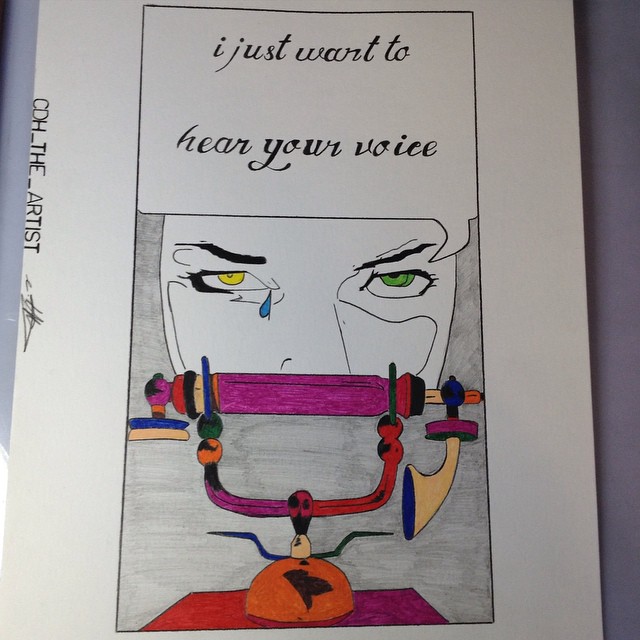 i just want to
hear your voice
CDH_THE_ARTIST